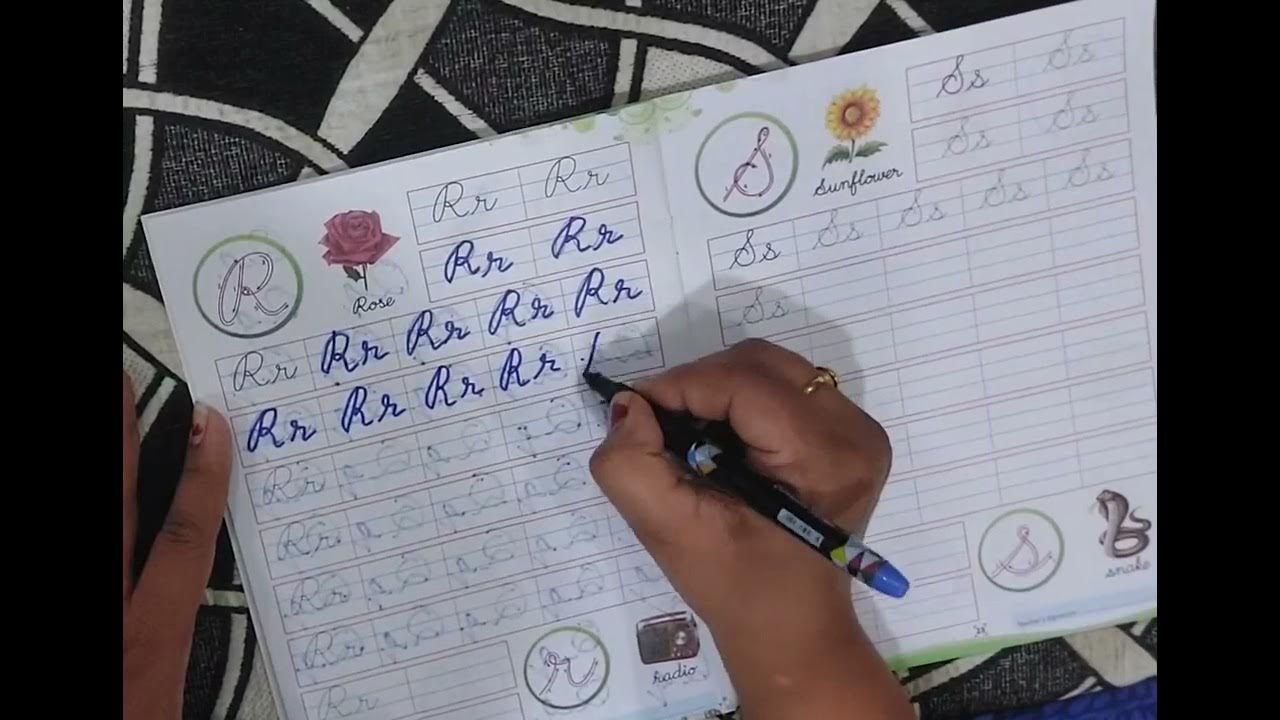 Rr Rr
R
Rose
Rr Rr
Rr Rr Rr Rr Rr
Rr Rr Rr Rr
Rr
Rr
Rr
Rr
Rr
r
radio
S
Sunflower
Ss Ss
Ss Ss
Ss Ss Ss Ss Ss
Ss
S
snake